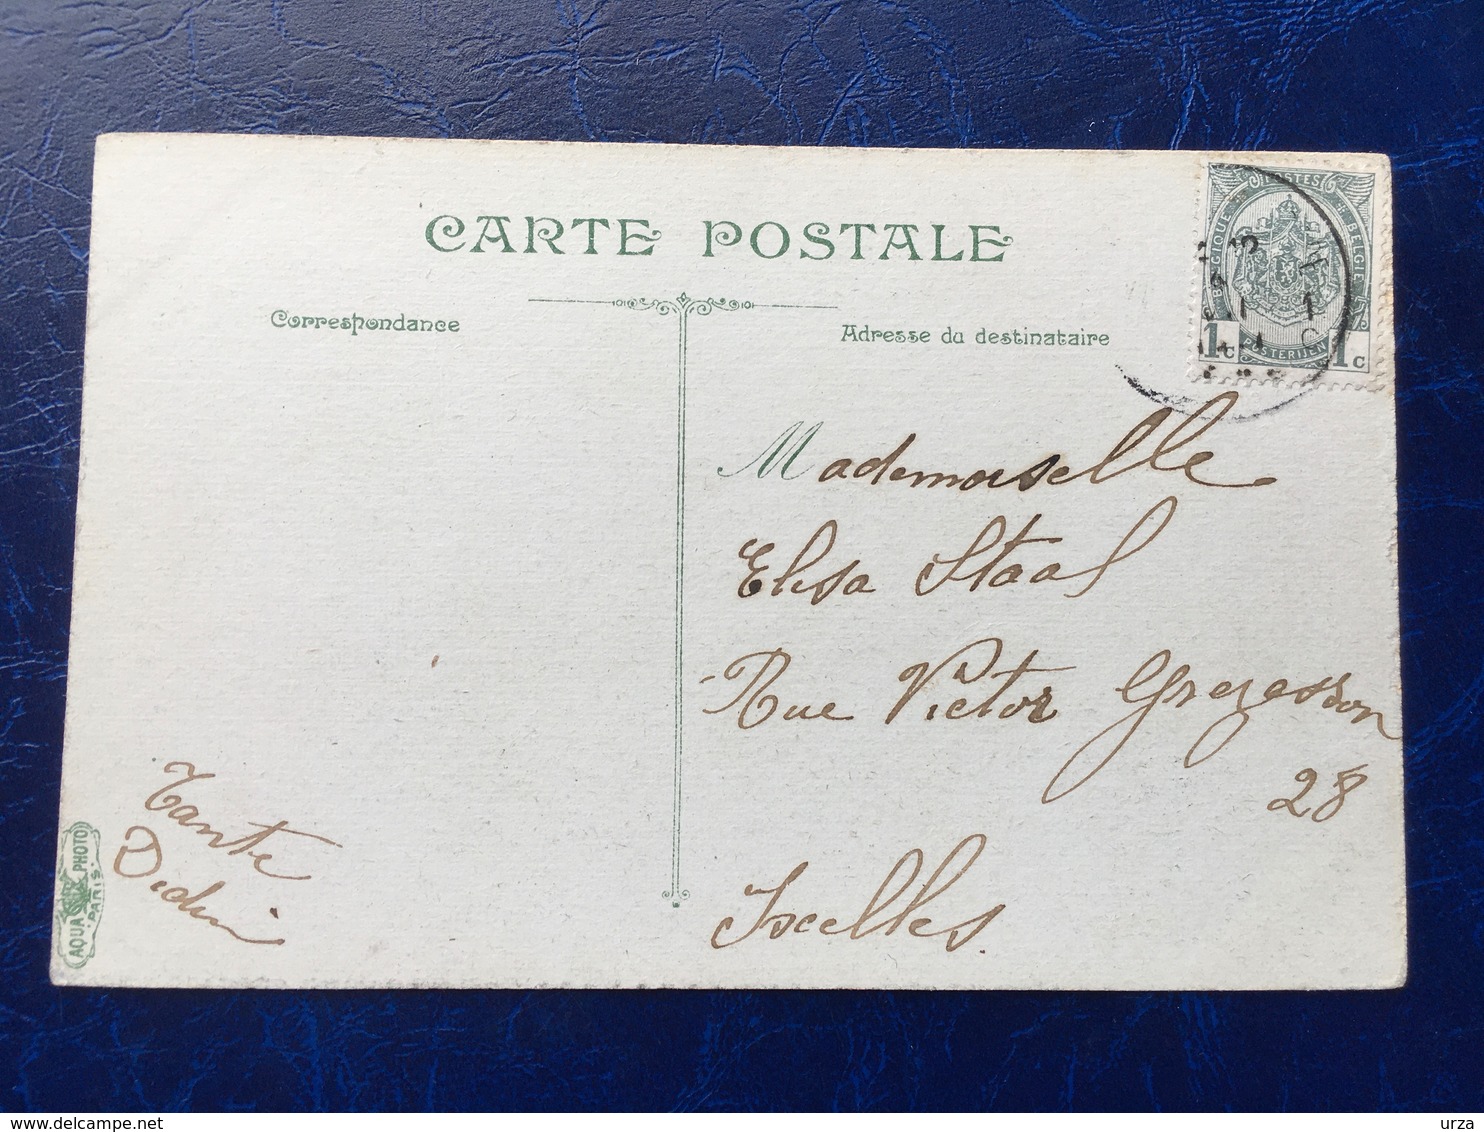 CARTE POSTALE
Correspondance
Adresse du destinataire
POSTES
BELGIQUE
BELGIE
1c POSTERIJEN 1c
Mademoiselle
Elisa Staal
Rue Victor Gregesson
28
Ixelles.
Tante
Didini
AQUA PHOTO
PARIS.
urza